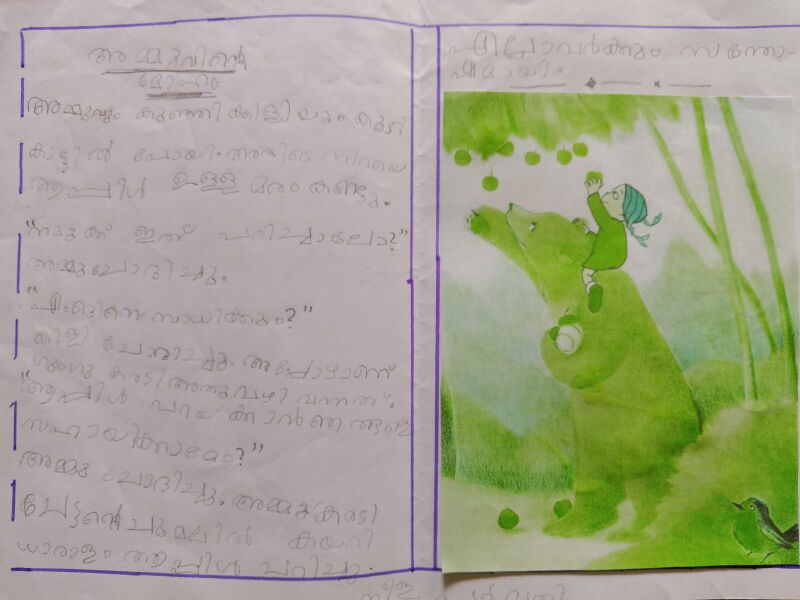 അമ്മുവിന്റെ
മോഹം
അമ്മുവും കുഞ്ഞിക്കിളിയും കൂടി
കാട്ടിൽ പോയി. അവിടെ നിറയെ
ആപ്പിൾ ഉള്ള മരം കണ്ടു.
"നമുക്ക് ഇത് പറിച്ചാലോ?"
അമ്മു ചോദിച്ചു.
"എങ്ങിനെ സാധിക്കും?"
കിളി ചോദിച്ചു. അപ്പോഴാണ്
കരടി അതുവഴി വന്നത്.
"ആപ്പിൾ പറയ്ക്കാൻ ഞങ്ങളെ
സഹായിക്കാമോ?"
അമ്മു ചോദിച്ചു. അമ്മു കരടി
ചേട്ടന്റെ ചുമലിൽ കയറി
ധാരാളം ആപ്പിൾ പറിച്ചു.
എല്ലാവർക്കും സന്തോ-
ഷമായി.